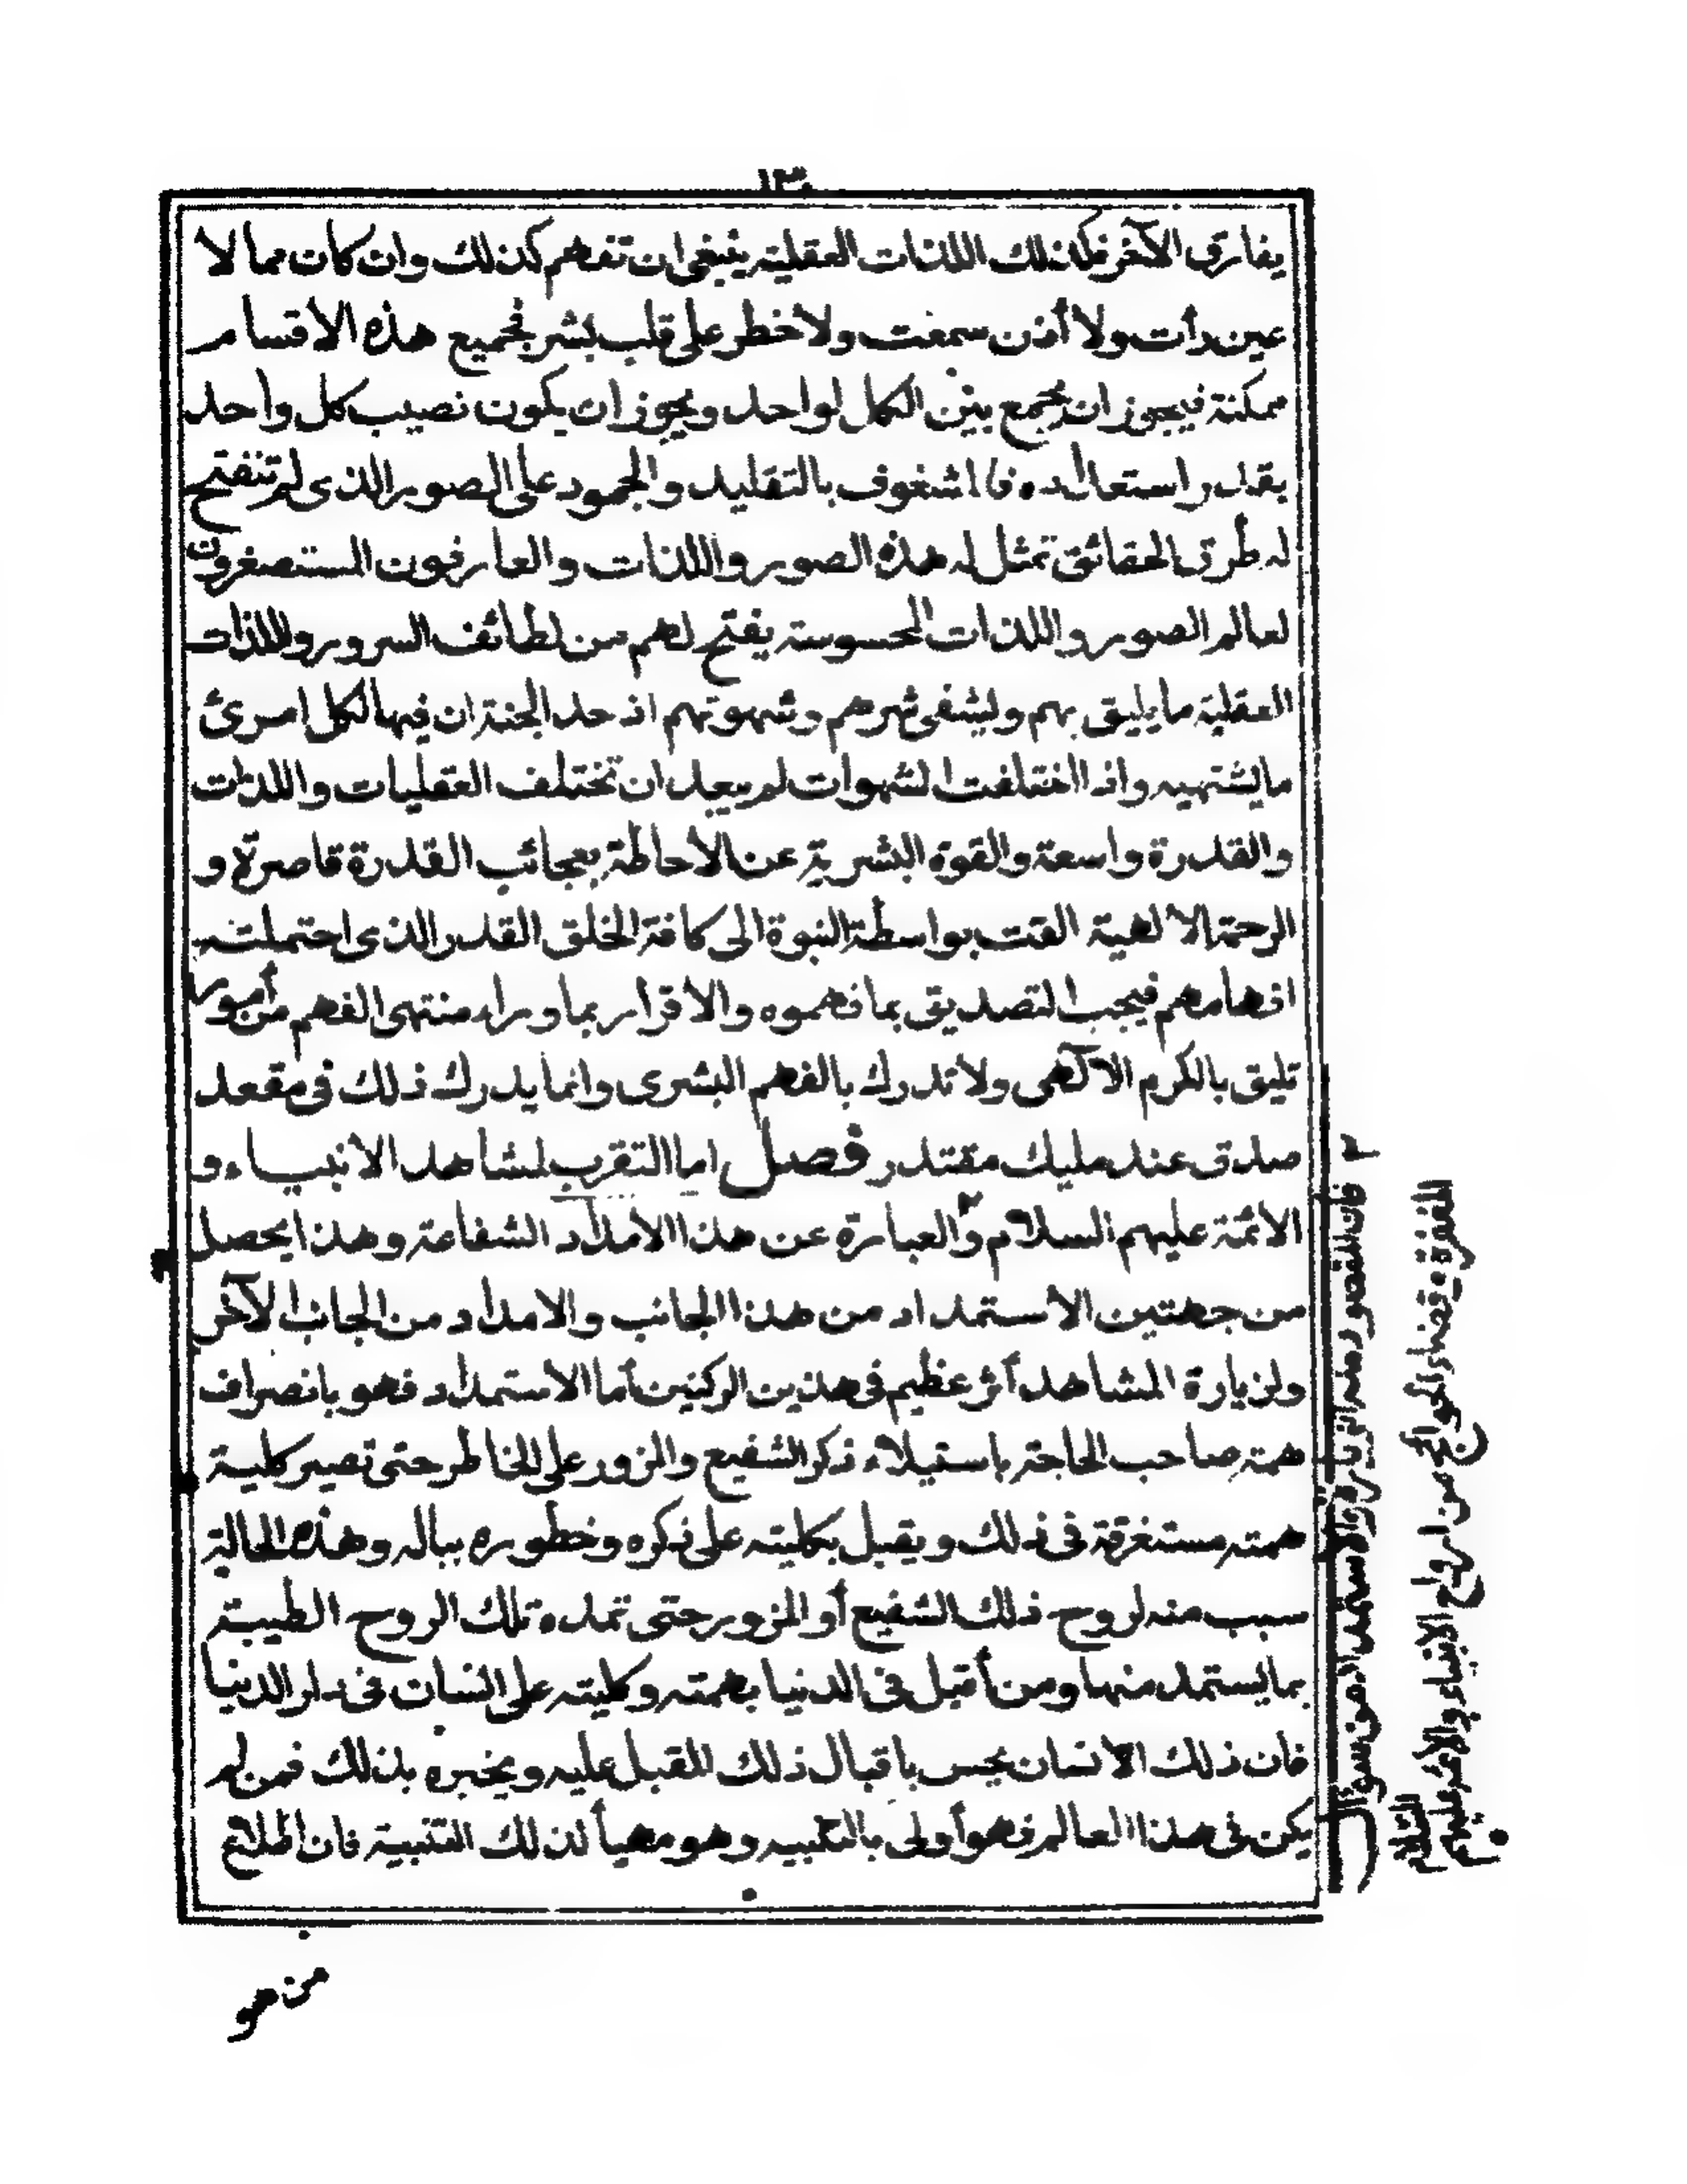 ١٣٠
يفارق الآخر فكذلك اللذات العقلية ينبغى ان تفهم كذلك وان كان مما لا
عين رأت ولا أذن سمعت ولا خطر على قلب بشر فجميع هذه الاقسام
ممكنة فيجوز ان يجمع بين الكل لواحد ويجوز ان يكون نصيب كل واحد
بقدر استعداده فالمشغوف بالتقليد والجمود على الصور الذى لم تنفتح
له طرق الحقائق تمثل له هذه الصور واللذات والعارفون المستصغرون
لعالم الصور واللذات المحسوسة يفتح لهم من لطائف السرور واللذات
العقلية ما يليق بهم وليشفى شرههم وشهوتهم اذ حد الجنة ان فيها لكل امرئ
ما يشتهيه واذا اختلفت الشهوات لم يبعد ان تختلف العقليات واللذات
والقدرة واسعة والقوة البشرية عن الاحاطة بعجائب القدرة قاصرة و
الرحمة الالهية القت بواسطة النبوة الى كافة الخلق القدر الذى احتملته
افهامهم فيجب التصديق بما فهموه والاقرار بما وراء منتهى الفهم من أمور
تليق بالكرم الآلهى ولا تدرك بالفهم البشرى وانما يدرك ذلك فى مقعد
صدق عند مليك مقتدر فصل اما التقرب لمشاهد الانبياء و
الائمة عليهم السلام ٣ والعبارة عن هذا الامداد الشفاعة وهذا يحصل
من جهتين الاستمداد من هذا الجانب والامداد من الجانب الآخر
ولزيارة المشاهد أثر عظيم فى هذين الركنين أما الاستمداد فهو بانصراف
همة صاحب الحاجة باستيلاء ذكر الشفيع والمزور على الخاطر حتى تصير كلية
همته مستغرقة فى ذلك ويقبل بكليته على ذكره وخطوره بباله وهذه الحالة
سبب منبه لروح ذلك الشفيع أو المزور حتى تمده تلك الروح الطيبة
بما يستمد منها ومن أقبل فى الدنيا بهمته وكليته على انسان فى دار الدنيا
فان ذلك الانسان يحس باقبال ذلك المقبل عليه ويخبره بذلك فمن لم
يكن فى هذا العالم فهو أولى بالتنبيه وهو مهيأ لذلك التنبيه فان اطلاع
من هو
٣ فان المقصود منه الزيارة والاستمداد من سؤال
المغفرة وقضاء الحوائج من ارواح الانبياء والائمة عليهم
السلام